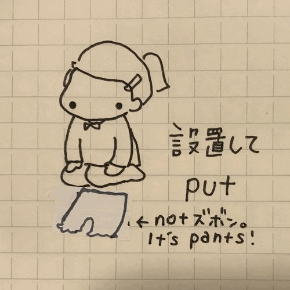 設置して
put
←notズボン。
It's pants!